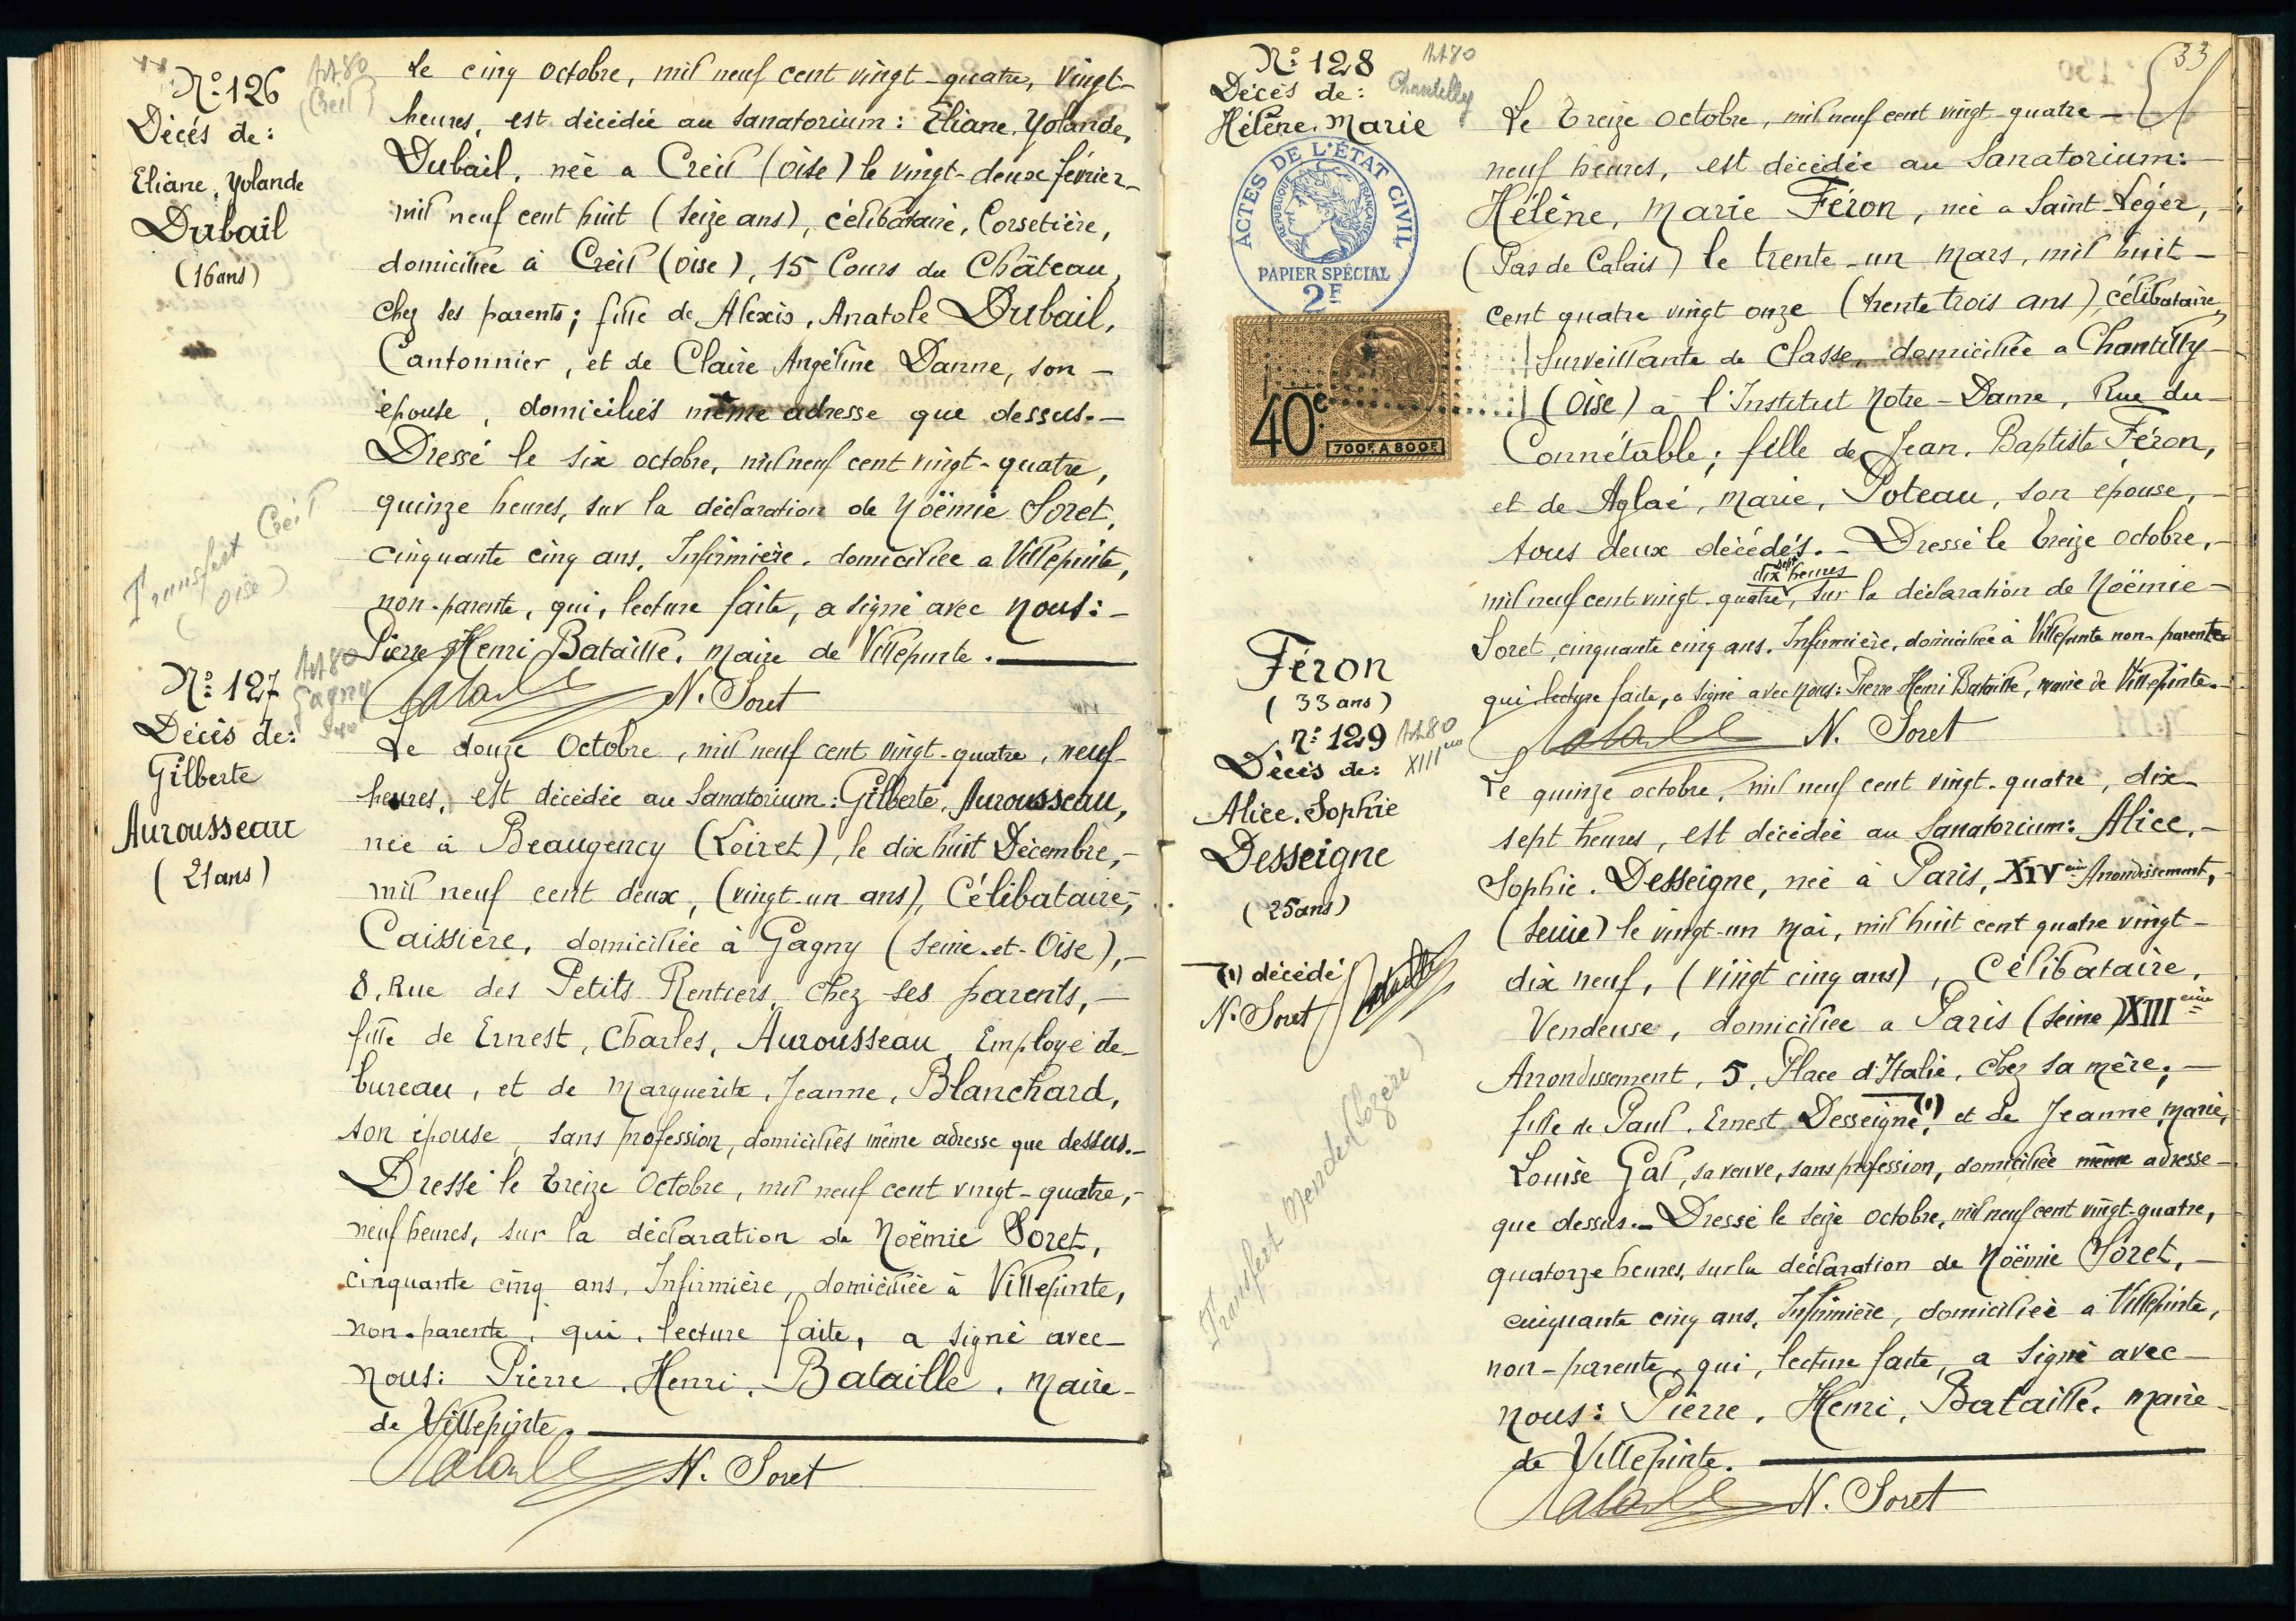 N° 126
Art 80
(Creil)
Décés de:
Eliane, Yolande
Dubail
(16 ans)
Le cinq Octobre, mil neuf cent vingt-quatre, vingt-
heures, est décédée au Sanatorium: Eliane, Yolande,
Dubail, née a Creil (Oise) le vingt-deux février-
mil neuf cent huit (seize ans), célibataire, Corsetière,
domiciliée à Creil (Oise), 15 Cours du Château,
chez ses parents; fille de Alexis, Anatole Dubail,
Cantonnier, et de Claire Angéline Danne, son -
épouse, domiciliés même adresse que dessus. -
Dressé le six octobre, mil neuf cent vingt-quatre,
quinze heures, sur la déclaration de Noëmie Soret,
cinquante cinq ans, Infirmière, domiciliée a Villepinte,
non-parente, qui, lecture faite, a signé avec nous: -
Pierre Henri Bataille, maire de Villepinte.
Transfert Creil
(Oise)
Bataille N. Soret
N° 127
Art 80
Gagny
Décés de:
Gilberte
Aurousseau
(21 ans)
Le douze Octobre, mil neuf cent vingt-quatre, neuf-
heures, est décédée au Sanatorium: Gilberte, Aurousseau,
née à Beaugency (Loiret), le dix huit Décembre, -
mil neuf cent deux, (vingt-un ans), Célibataire, -
Caissière, domiciliée à Gagny (Seine-et-Oise), -
8, Rue des Petits Rentiers, chez ses parents, -
fille de Ernest, Charles, Aurousseau, Employé de-
bureau, et de Marguerite, Jeanne, Blanchard,
son épouse, sans profession, domiciliés même adresse que dessus. -
Dressé le treize Octobre, mil neuf cent vingt-quatre, -
neuf heures, sur la déclaration de Noëmie Soret,
cinquante cinq ans, Infirmière, domiciliée à Villepinte,
non-parente, qui, lecture faite, a signé avec-
nous: Pierre, Henri, Bataille, maire-
de Villepinte.
Bataille N. Soret
33
N° 128
Art 80
Chantilly
Décés de:
Hélène, Marie
ACTES DE L'ÉTAT CIVIL
REPUBLIQUE FRANÇAISE
PAPIER SPÉCIAL
2F
40c
700F. A 800F.
Féron
(33 ans)
Le treize octobre, mil neuf cent vingt-quatre -
neuf heures, est décédée au Sanatorium: -
Hélène, Marie Féron, née a Saint-Léger, -
(Pas de Calais) le trente-un mars, mil huit -
cent quatre vingt onze (trente trois ans), célibataire,
Surveillante de Classe, domiciliée a Chantilly -
(Oise) à l'Institut Notre-Dame, Rue du -
Connétable; fille de Jean, Baptiste Féron,
et de Aglaé, Marie, Poteau, son épouse, -
tous deux décédés. - Dressé le treize octobre, -
dix sept heures
mil neuf cent vingt-quatre, sur la déclaration de Noëmie -
Soret, cinquante cinq ans, Infirmière, domiciliée à Villepinte non-parente
qui lecture faite, a signé avec nous: Pierre Henri Bataille, maire de Villepinte. -
Bataille N. Soret
N° 129
Art 80
XIIIème
Décés de:
Alice, Sophie
Desseigne
(25 ans)
(1) décédé
N. Soret Bataille
Transfert Mende (Lozère)
Le quinze octobre, mil neuf cent vingt-quatre, dix-
sept heures, est décédée au Sanatorium: Alice, -
Sophie, Desseigne, née à Paris, XIVème Arrondissement,
(Seine) le vingt-un mai, mil huit cent quatre vingt -
dix neuf, (vingt cinq ans), Célibataire,
Vendeuse, domiciliée a Paris (Seine) XIIIème
Arrondissement, 5, Place d'Italie, chez sa mère; -
fille de Paul, Ernest Desseigne (1), et de Jeanne, Marie,
Louise Gal, sa veuve, sans profession, domiciliée même adresse -
que dessus. - Dressé le seize octobre, mil neuf cent vingt-quatre,
quatorze heures, sur la déclaration de Noëmie Soret, -
cinquante cinq ans, Infirmière, domiciliée à Villepinte,
non-parente, qui, lecture faite, a signé avec -
nous: Pierre, Henri, Bataille, maire -
de Villepinte.
Bataille N. Soret